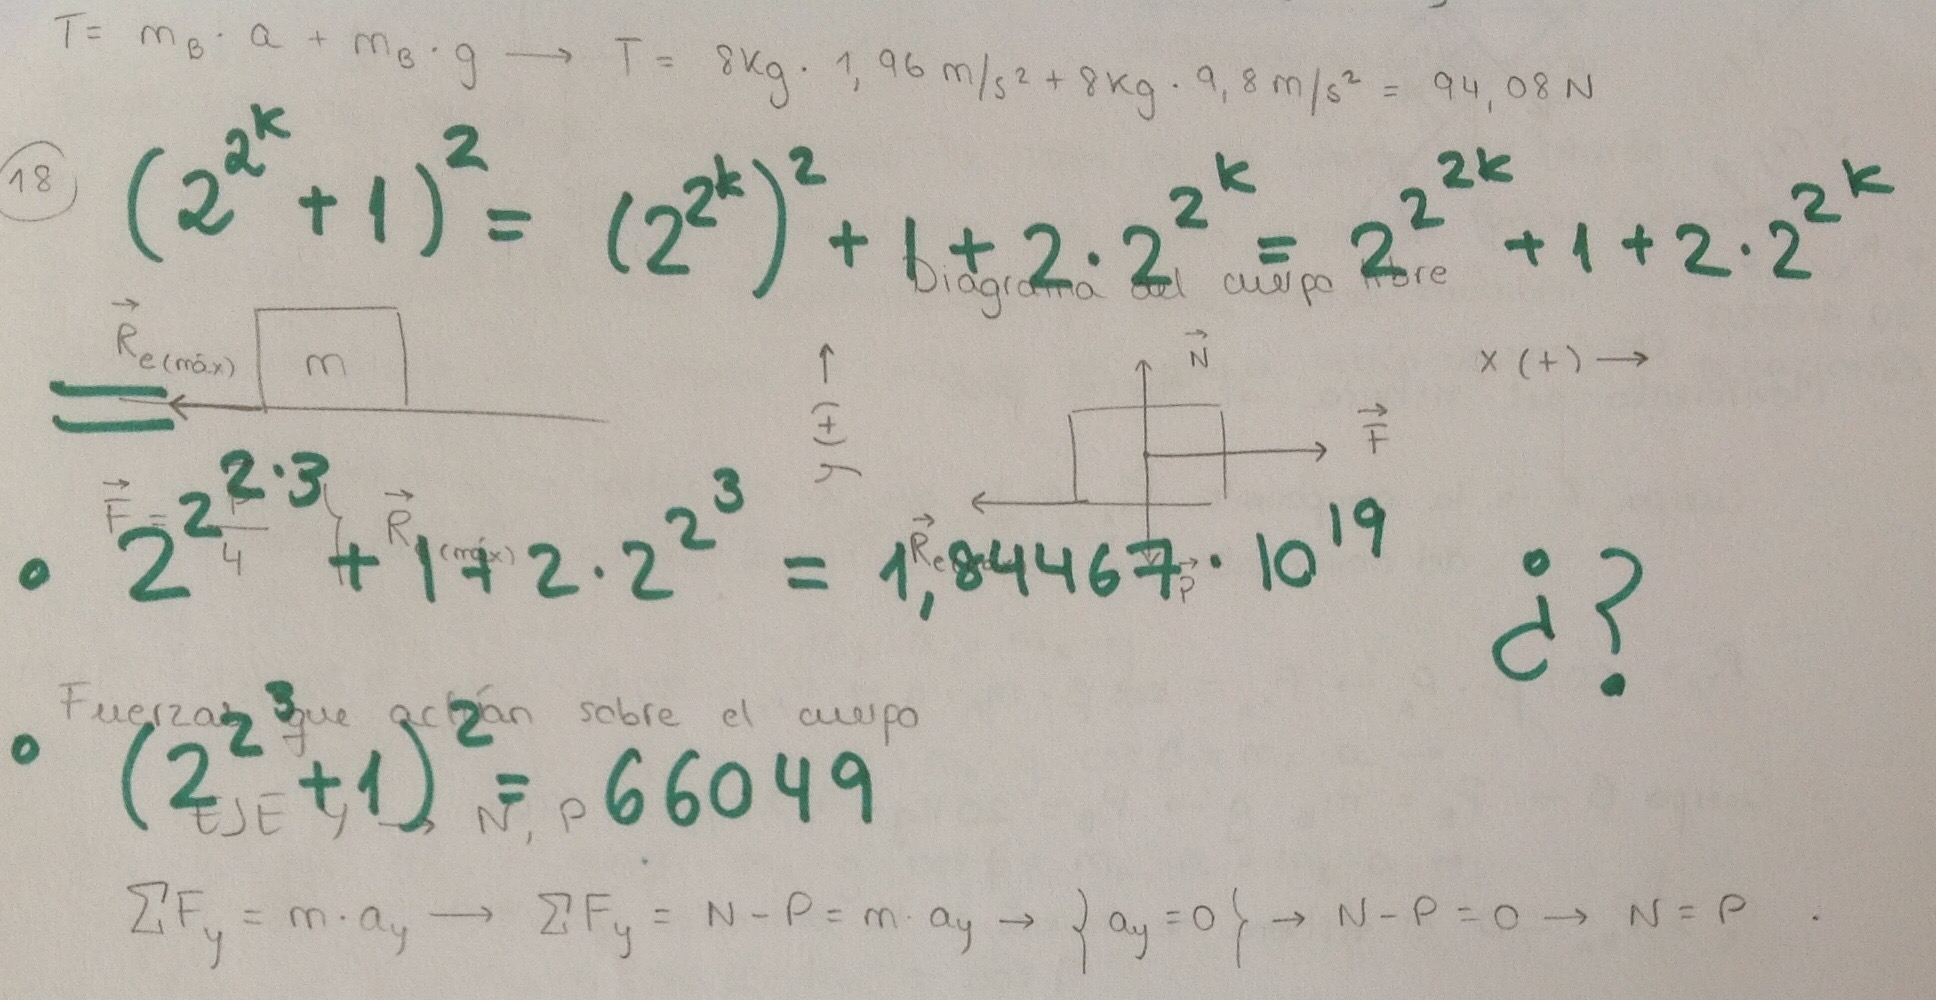 T = m_B · a + m_B · g → T = 8Kg · 1,96 m/s² + 8Kg · 9,8 m/s² = 94,08 N
18
(2^{2^k} + 1)² = (2^{2^k})² + 1 + 2 · 2^{2^k} = 2^{2^{2k}} + 1 + 2 · 2^{2^k}
Diagrama del cuerpo libre
R⃗e(máx) m
y (+) →
N⃗
x (+) →
F⃗
=
F⃗ = P/4 R⃗e(máx)
R⃗e
P⃗
• 2^{2^{2·3}} + 1 + 2 · 2^{2^3} = 1,84467 · 10^{19} ¿?
Fuerzas que actúan sobre el cuerpo
• (2^{2^3} + 1)² = 66049
EJE y → N, P
ΣF_y = m · a_y → ΣF_y = N - P = m · a_y → } a_y = 0 { → N - P = 0 → N = P .